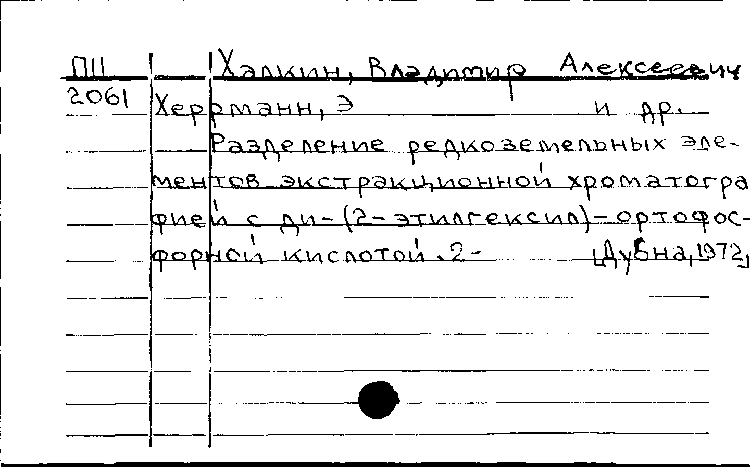 П11 Халкин, Владимир Алексеевич
2061 Херрманн, Э и др.
Разделение редкоземельных эле-
ментов экстракционной хроматогра
фией с ди-(2-этилгексил)-ортофос-
форной кислотой.2- Дубна,1972,